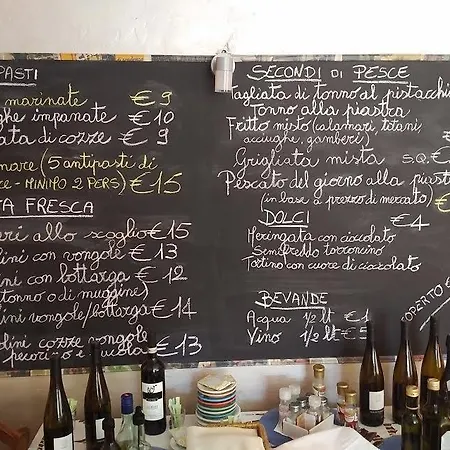 PASTI
marinate € 9
ghe impanate € 10
ata di cozze € 9
mare (5 antipasti di
ce - MINIMO 2 PERS) € 15
TA FRESCA
eri allo scoglio € 15
lini con vongole € 13
ini con bottarga € 12
(tonno o di muggine)
ini vongole/bottarga € 14
olini cozze vongole
pecorino e rucola € 13
SECONDI DI PESCE
Tagliata di tonno al pistacchi
Tonno alla piastra
Fritto misto (calamari, totani
acciughe, gamberi) €
Grigliata mista S.Q. €
Pescato del giorno alla pias
(in base a prezzo di mercato) €
DOLCI € 4
Meringata con cioccolato
Semifreddo torroncino
Tortino con cuore di cioccolato
BEVANDE
Acqua 1/2 lt € 1
Vino 1/2 lt € 5
COPERTO €